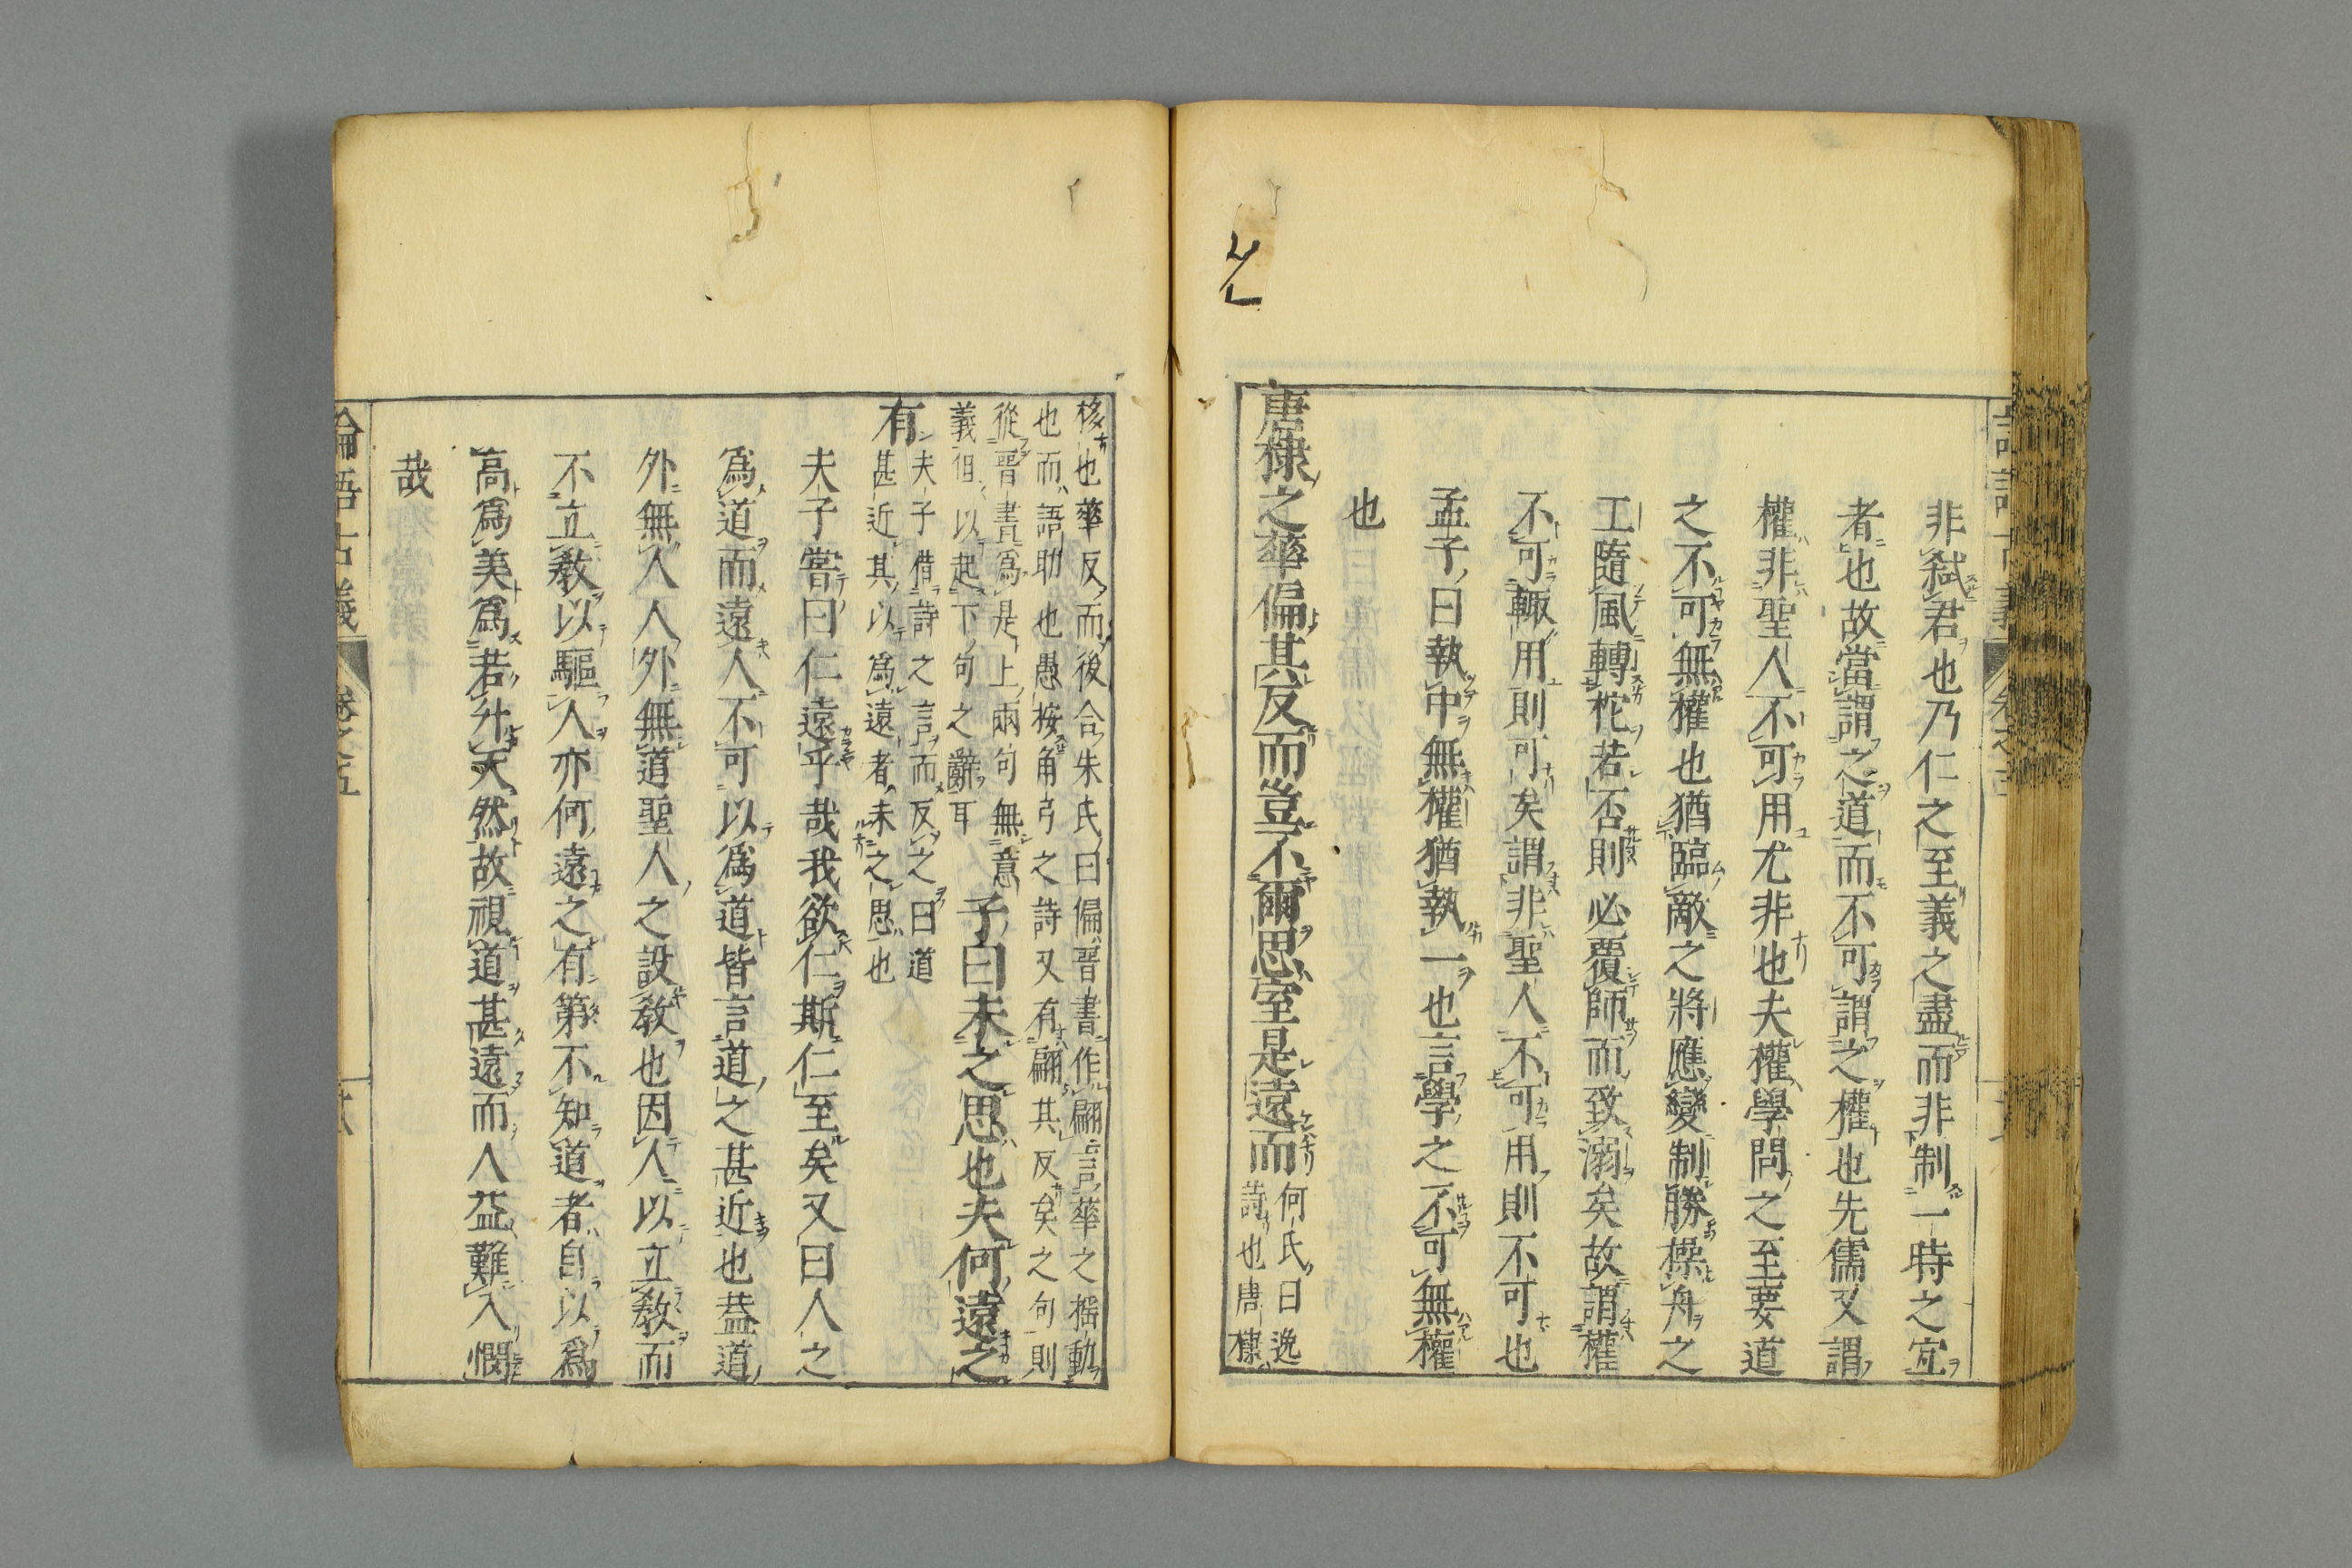 非弑君也乃仁之至義之盡而非制一時之宜
者也故當謂之道而不可謂之權也先儒又謂
權非聖人不可用尤非也夫權學問之至要道
之不可無權也猶臨敵之將應變制勝操舟之
工隨風轉柁若否則必覆師而致溺矣故謂權
不可輙用則可矣謂非聖人不可用則不可也
孟子曰執中無權猶執一也言學之不可無權
也
唐棣之華偏其反而豈不爾思室是遠而
何氏曰逸
詩也唐棣
核也華反而後合朱氏曰偏晉書作翩言華之搖動
也而語助也愚按角弓之詩又有翩其反矣之句則
從晉書爲是上兩句無意
義但以起下句之辭耳
子曰未之思也夫何遠之
有
夫子借詩之言而反之曰道
甚近其以爲遠者未之思也
夫子嘗曰仁遠乎哉我欲仁斯仁至矣又曰人之
爲道而遠人不可以爲道皆言道之甚近也蓋道
外無人人外無道聖人之設教也因人以立教而
不立教以驅人亦何遠之有第不知道者自以爲
高爲美爲若升天然故視道甚遠而人益難入憫
哉
論語古義 卷之五